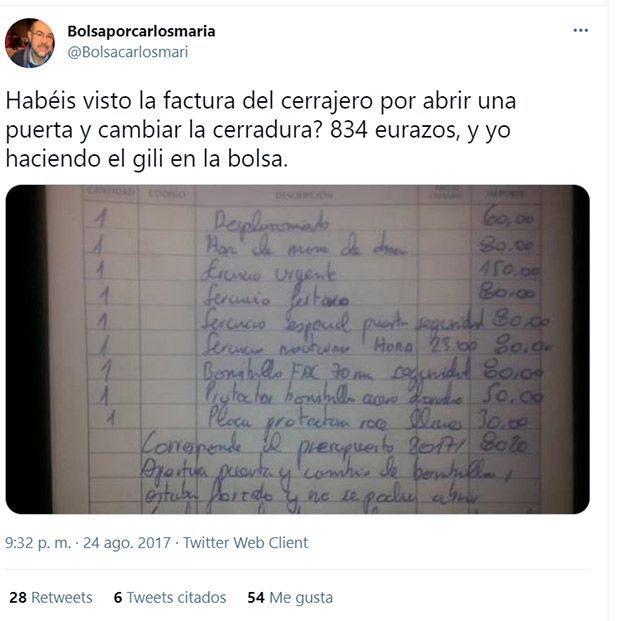 Bolsaporcarlosmaria
@Bolsacarlosmari
Habéis visto la factura del cerrajero por abrir una
puerta y cambiar la cerradura? 834 eurazos, y yo
haciendo el gili en la bolsa.
CANTIDAD CODIGO DESCRIPCIÓN IMPORTE
1 Desplazamiento 60,00
1 de mano de obra 80.00
1 Servicio urgente 150,00
1 Servicio festivo 80.00
1 Servicio especial puerta seguridad 80.00
1 Servicio nocturno Hora 23:00 80,00
1 Bombillo FAC 70 mm seguridad 80.00
1 Protector bombillo acero 50.00
1 Placa protectora 30.00
Corresponde al presupuesto 2017/ 8020
Apertura puerta y cambio de bombillo,
estaba forzado y no se podia abrir
9:32 p. m. · 24 ago. 2017 · Twitter Web Client
28 Retweets 6 Tweets citados 54 Me gusta